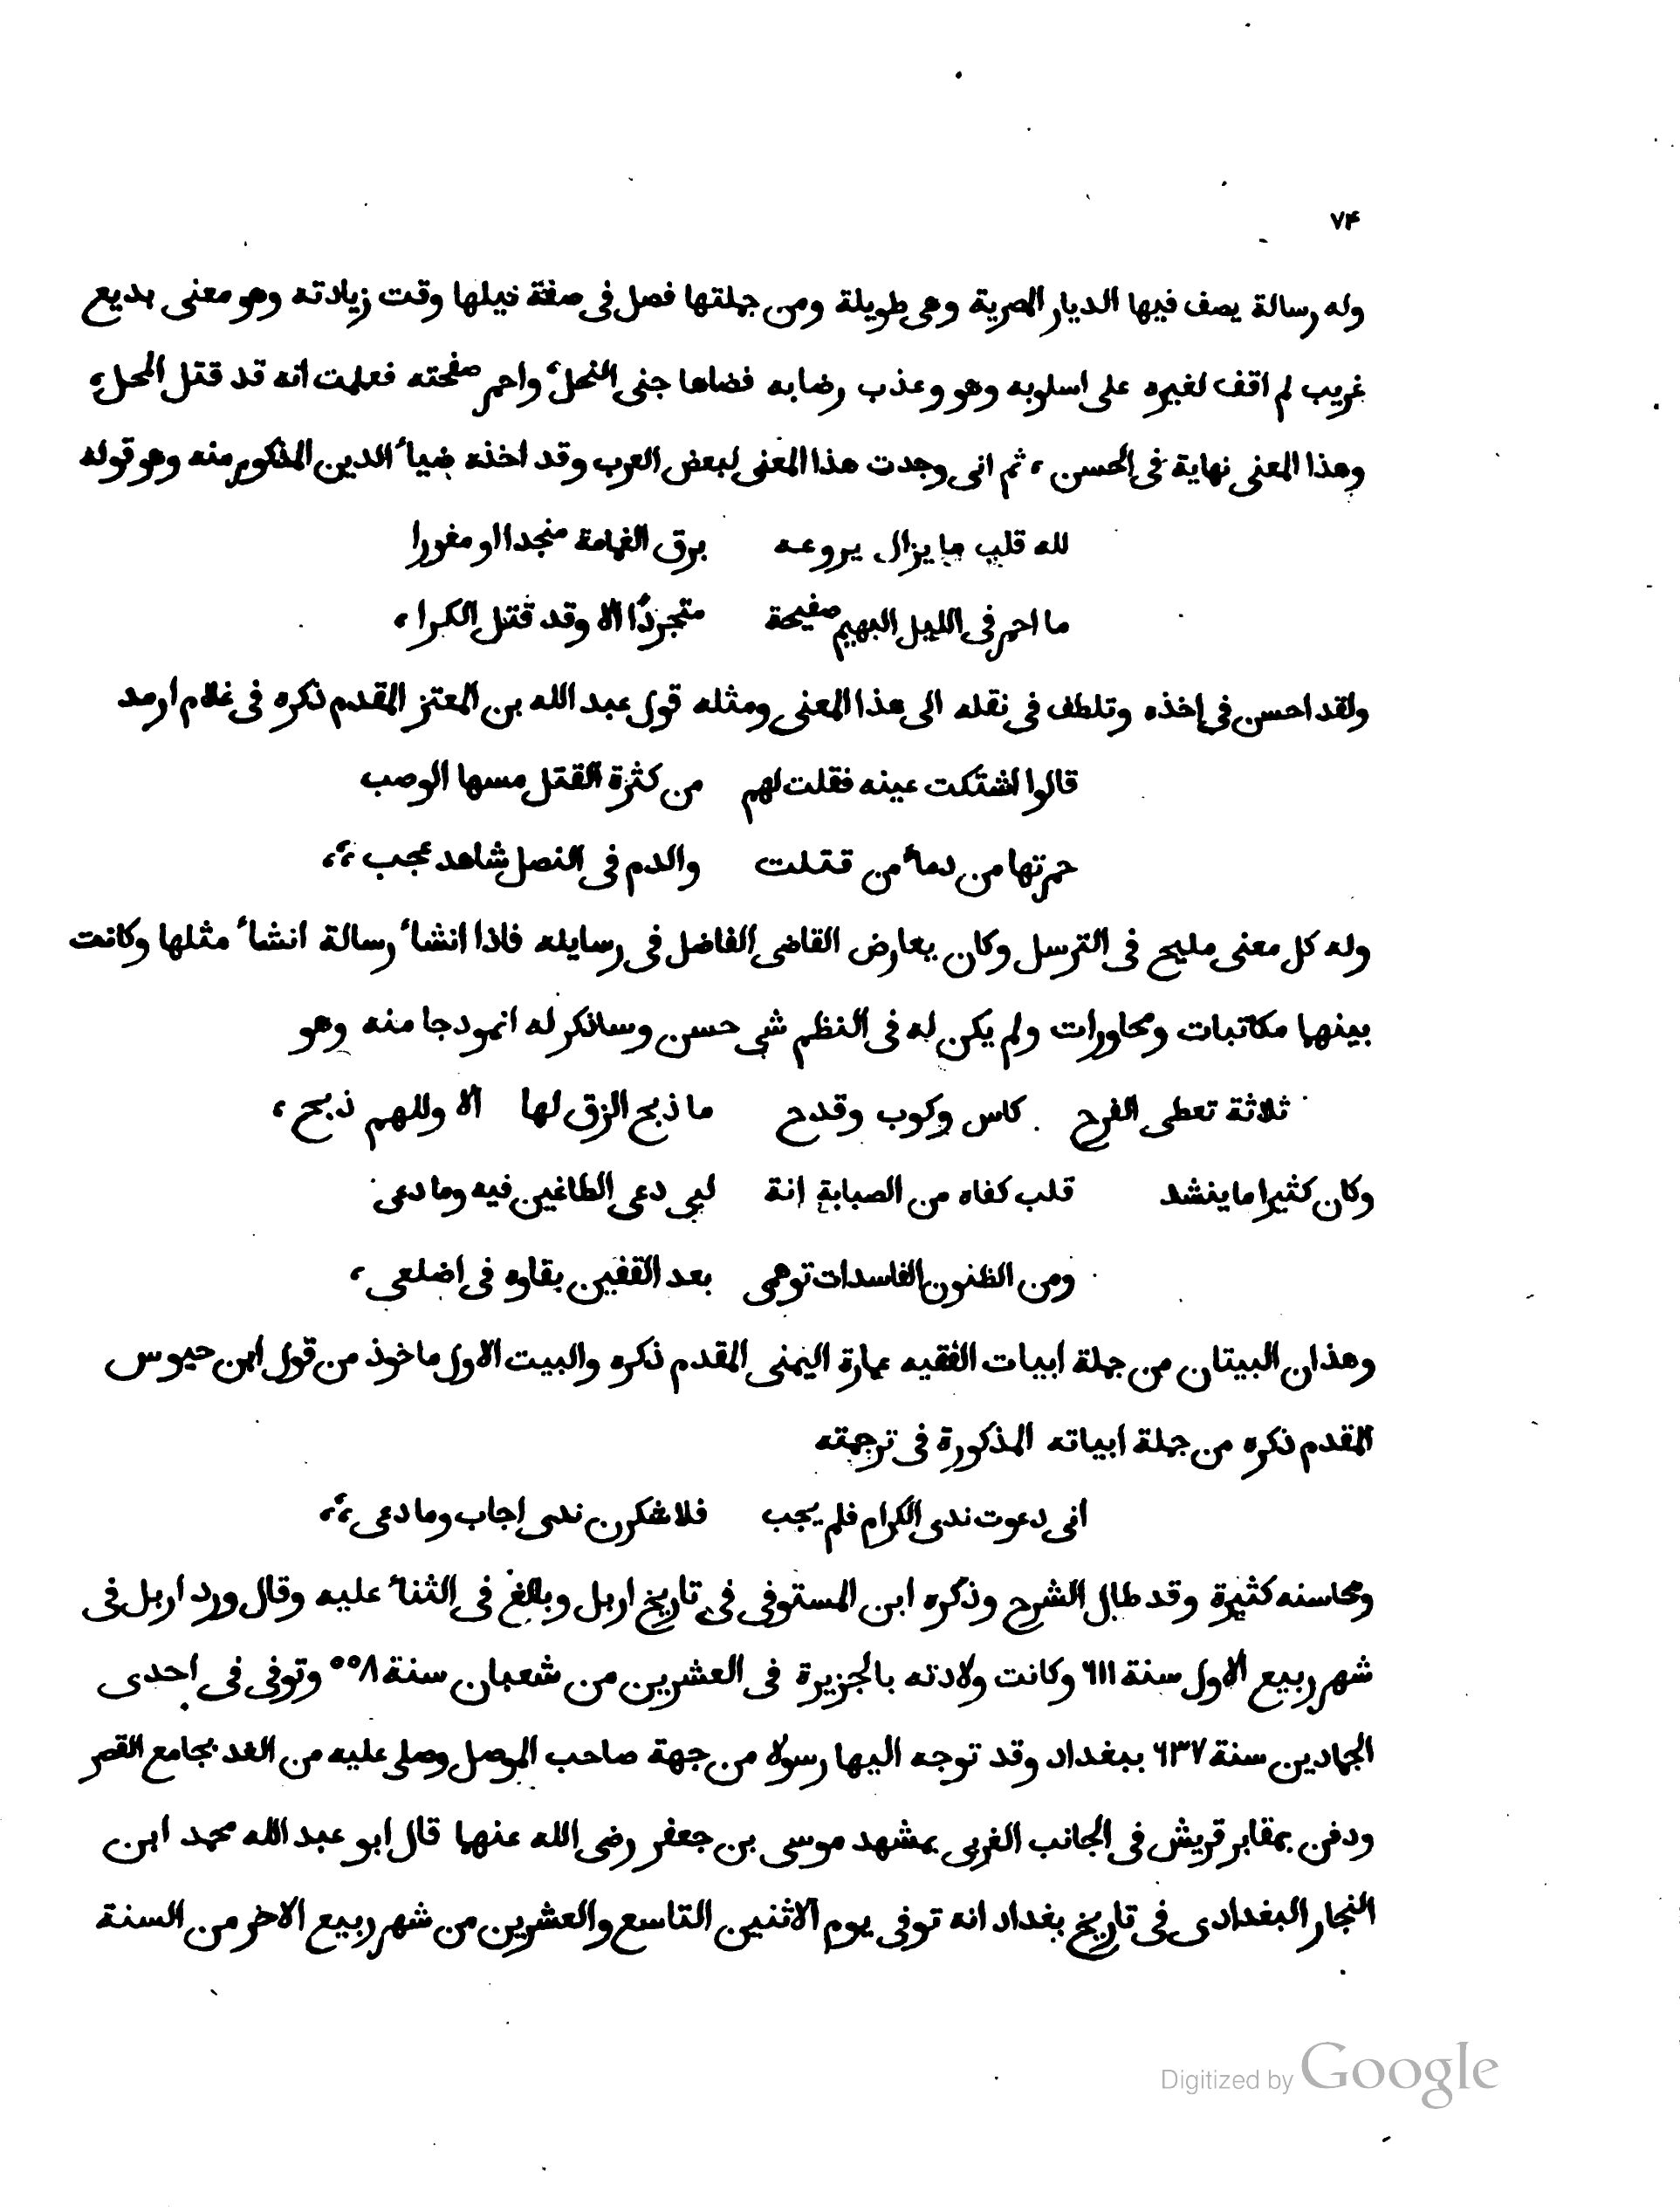 ٧۴
وله رسالة يصف فيها الديار المصرية وهى طويلة ومن جملتها فصل فى صفة نيلها وقت زيادته وهو معنى بديع
غريب لم اقف لغيره على اسلوبه وهو وعذب رضابه فضاها جنى النحل، واحمر صفحته فعلمت انه قد قتل المحل،
وهذا المعنى نهاية فى الحسن، ثم انى وجدت هذا المعنى لبعض العرب وقد اخذه ضياء الدين المذكور منه وهو قوله
لله قلب ما يزال يروعه برق الغمامة منجدا او مغورا
ما احمر فى الليل البهيم صفيحة متجردًا الا وقد قتل الكرا،
ولقد احسن فى اخذه وتلطف فى نقله الى هذا المعنى ومثله قول عبد الله بن المعتز المقدم ذكره فى غلام ارمد
قالوا اشتكت عينه فقلت لهم من كثرة القتل مسها الوصب
حمرتها من دماء من قتلت والدم فى النصل شاهد عجب،،
وله كل معنى مليح فى الترسل وكان يعارض القاضى الفاضل فى رسايله فاذا انشاء رسالة انشاء مثلها وكانت
بينهما مكاتبات ومحاورات ولم يكن له فى النظم شى حسن وساذكر له انمودجا منه وهو
ثلاثة تعطى الفرح كاس وكوب وقدح ما ذبح الزق لها الا وللهم ذبح،
وكان كثيرا ما ينشد قلب كفاه من الصبابة انة لبى دعى الطاغين فيه وما دعى
ومن الظنون الفاسدات توهمى بعد القفين بقاوه فى اضلعى،
وهذان البيتان من جملة ابيات الفقيه عمارة اليمنى المقدم ذكره والبيت الاول ماخوذ من قول ابن حيوس
المقدم ذكره من جملة ابياته المذكورة فى ترجمته
انى دعوت ندى الكرام فلم يجب فلاشكرن ندى اجاب وما دعى،،
ومحاسنه كثيرة وقد طال الشرح وذكره ابن المستوفى فى تاريخ اربل وبالغ فى الثناء عليه وقال ورد اربل فى
شهر ربيع الاول سنة ٦١١ وكانت ولادته بالجزيرة فى العشرين من شعبان سنة ٥٥٨ وتوفى فى احدى
الجمادين سنة ٦٣٧ ببغداد وقد توجه اليها رسولا من جهة صاحب الموصل وصلى عليه من الغد بجامع القصر
ودفن بمقابر قريش فى الجانب الغربى بمشهد موسى بن جعفر رضى الله عنهما قال ابو عبد الله محمد ابن
النجار البغدادى فى تاريخ بغداد انه توفى يوم الاثنين التاسع والعشرين من شهر ربيع الاخر من السنة
Digitized by Google